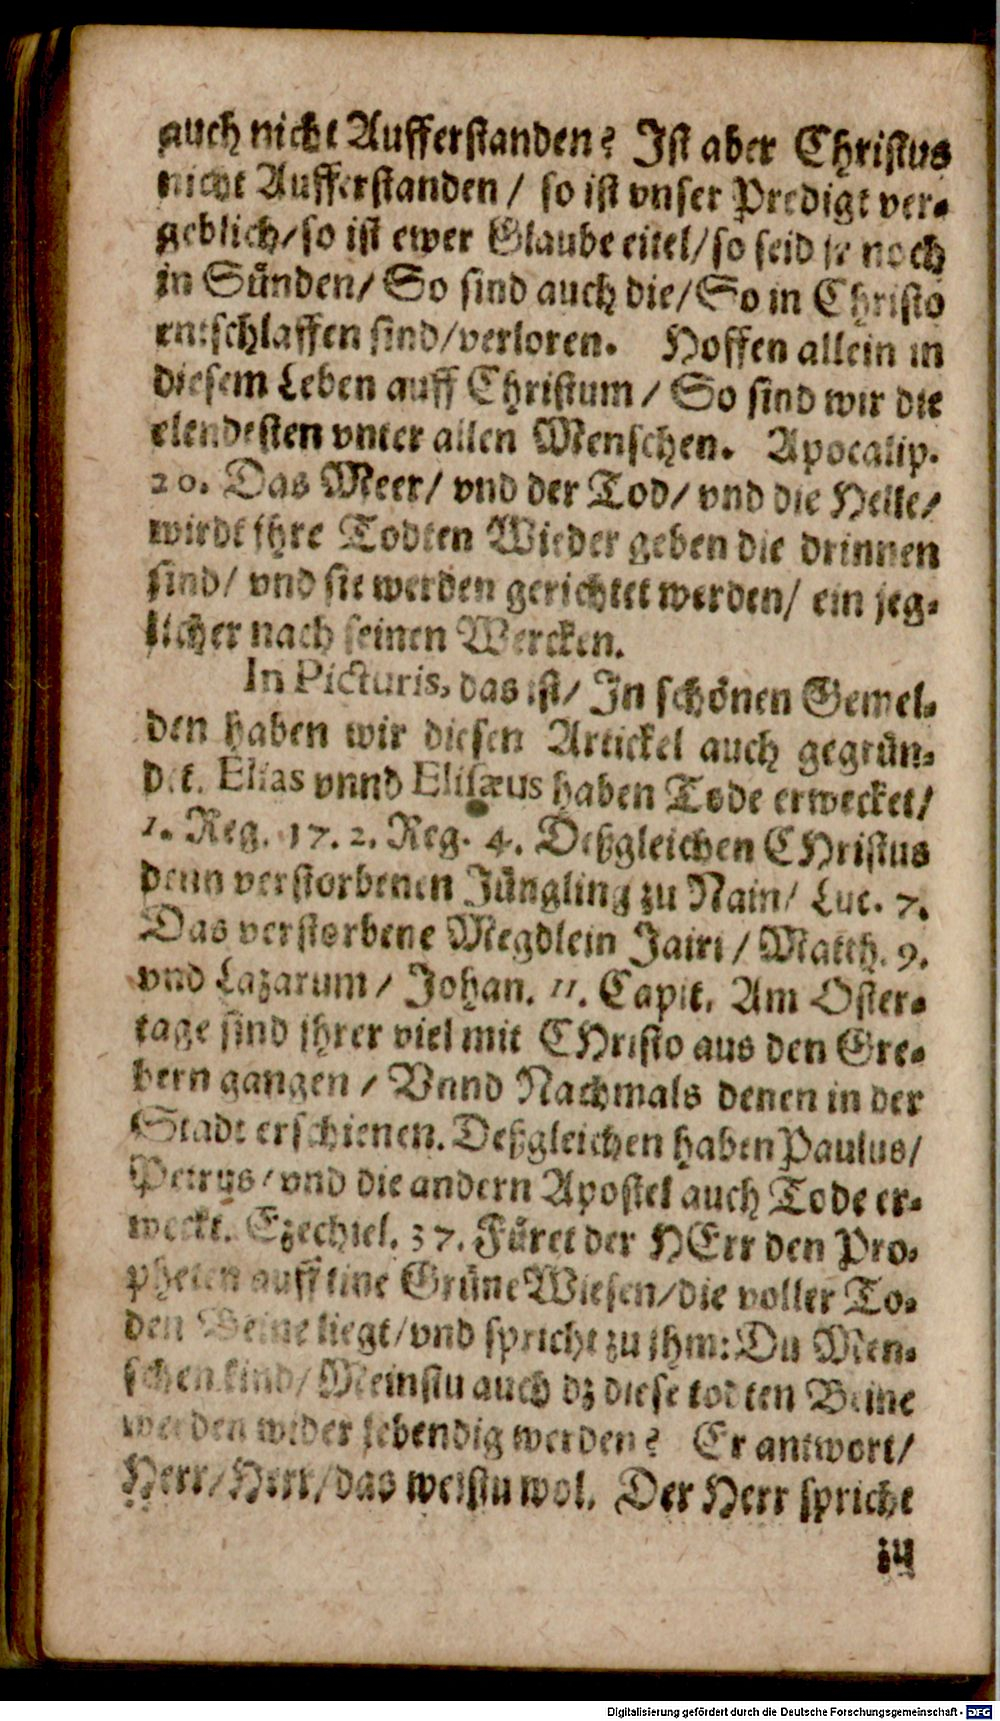 auch nicht Aufferstanden? Ist aber Christus
nicht Aufferstanden / so ist vnser Predigt ver-
geblich/ so ist ewer Glaube eitel/ so seid jr noch
in Sünden/ So sind auch die/ So in Christo
entschlaffen sind/ verloren. Hoffen allein in
diesem Leben auff Christum / So sind wir die
elendesten vnter allen Menschen. Apocalip.
20. Das Meer/ vnd der Tod/ vnd die Helle/
wirdt jhre Todten Wieder geben die drinnen
sind/ vnd sie werden gerichtet werden/ ein jeg-
licher nach seinen Wercken.
In Picturis, das ist/ In schönen Gemel-
den haben wir diesen Artickel auch gegrün-
det. Elias vnnd Elisæus haben Tode erwecket/
1. Reg. 17. 2. Reg. 4. Deßgleichen CHristus
denn verstorbenen Jüngling zu Nain/ Luc. 7.
Das verstorbene Megdlein Jairi / Matth. 9.
vnd Lazarum / Johan. 11. Capit. Am Oster-
tage sind jhrer viel mit CHristo aus den Gre-
bern gangen / Vnnd Nachmals denen in der
Stadt erschienen. Deßgleichen haben Paulus/
Petrus/ vnd die andern Apostel auch Tode er-
weckt. Ezechiel. 37. Füret der HErr den Pro-
pheten auff eine Grüne Wiesen/ die voller To-
den Beine liegt/ vnd spricht zu jhm: Du Men-
schenkind/ Meinstu auch dz diese todten Beine
werden wider lebendig werden? Er antwort/
Herr/ Herr/ das weistu wol. Der Herr spricht
zu
Digitalisierung gefördert durch die Deutsche Forschungsgemeinschaft - DFG